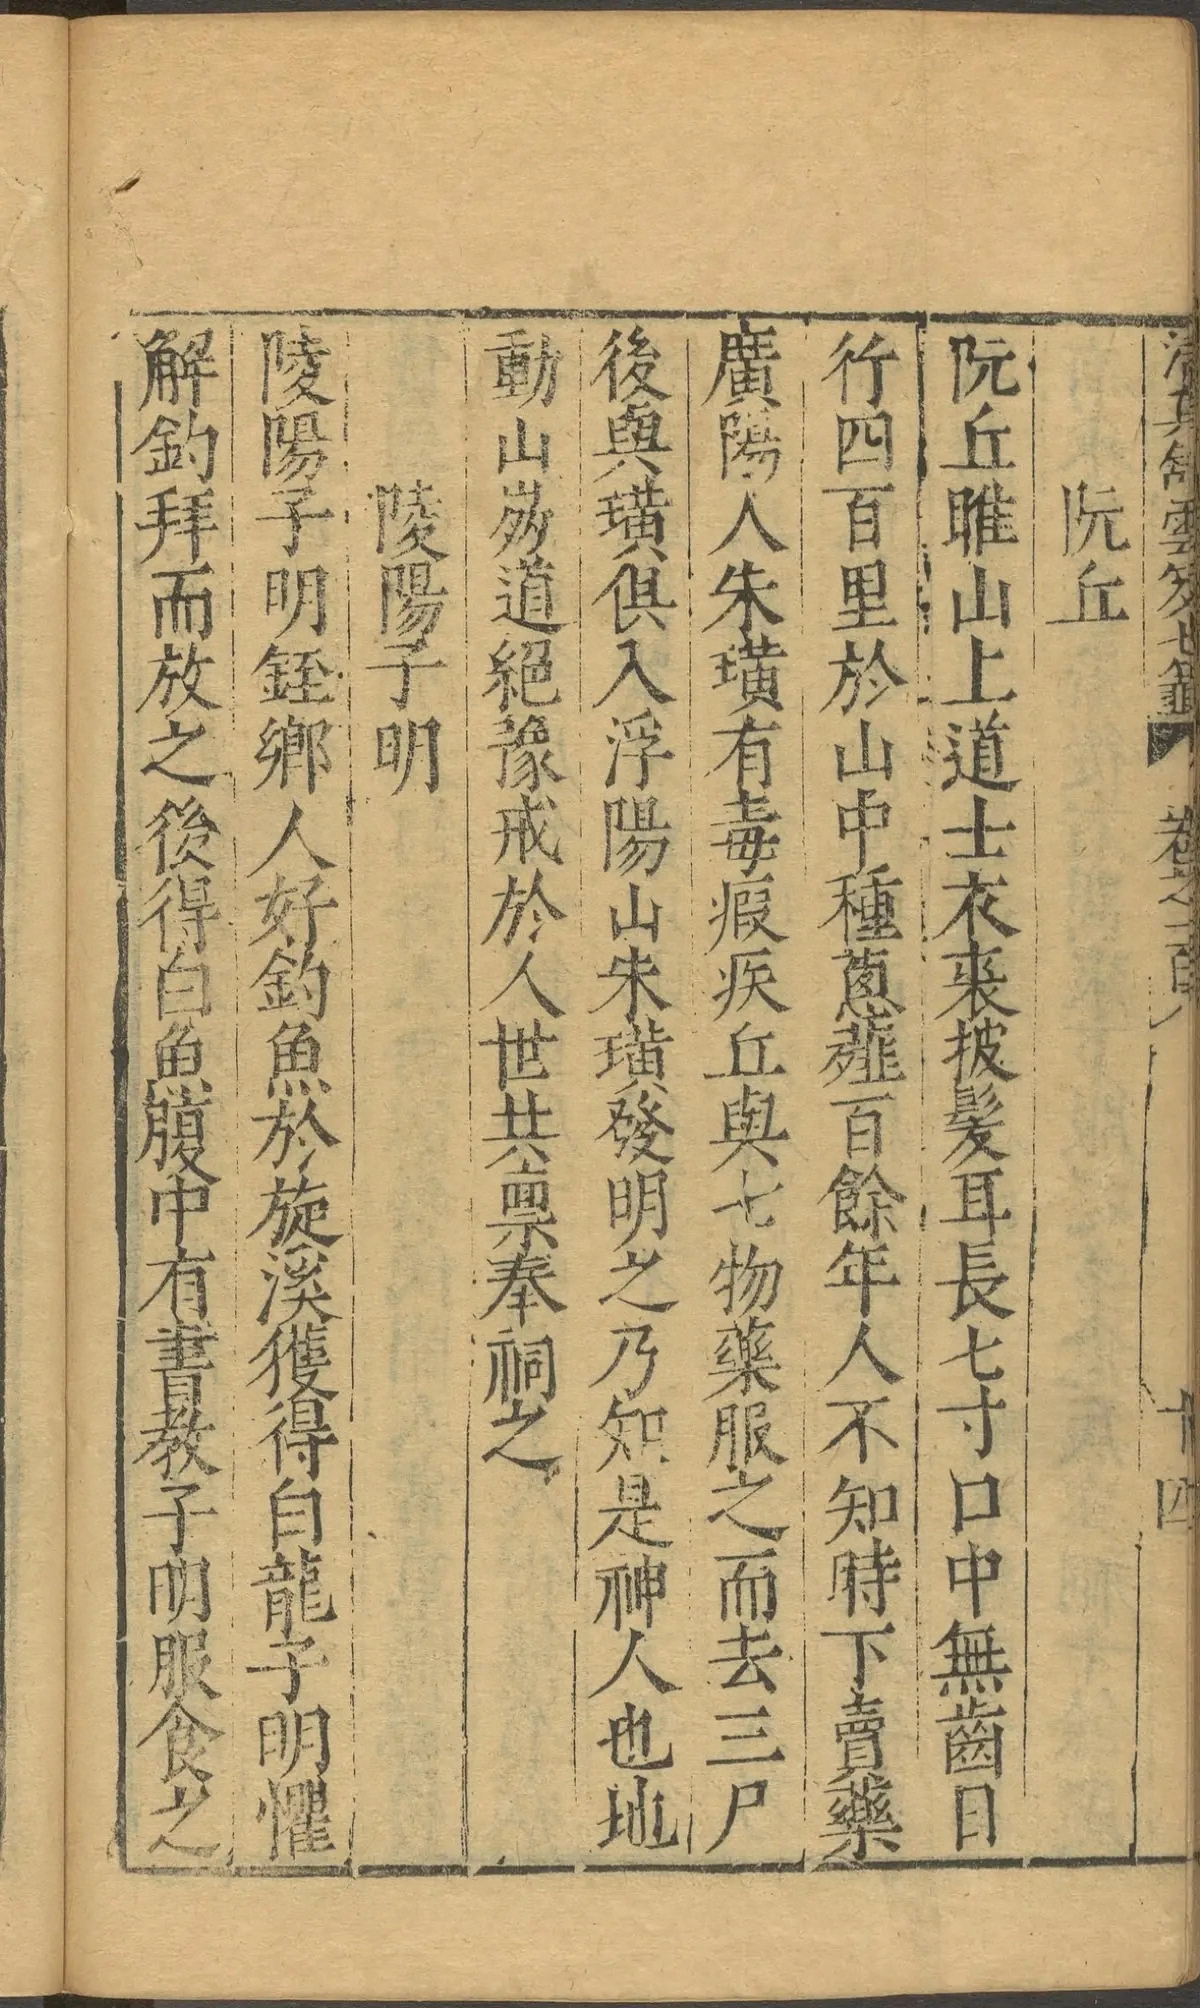 清真館雲笈七籤 卷之一百八 十四
阮丘
阮丘睢山上道士衣裘披髮耳長七寸口中無齒日
行四百里於山中種蔥薤百餘年人不知時下賣藥
廣陽人朱璜有毒瘕疾丘與七物藥服之而去三尸
後與璜俱入浮陽山朱璜發明之乃知是神人也地
動山崩道絕豫戒於人世共禀奉祠之
陵陽子明
陵陽子明銍鄉人好釣魚於旋溪獲得白龍子明懼
解釣拜而放之後得白魚腹中有書教子明服食之